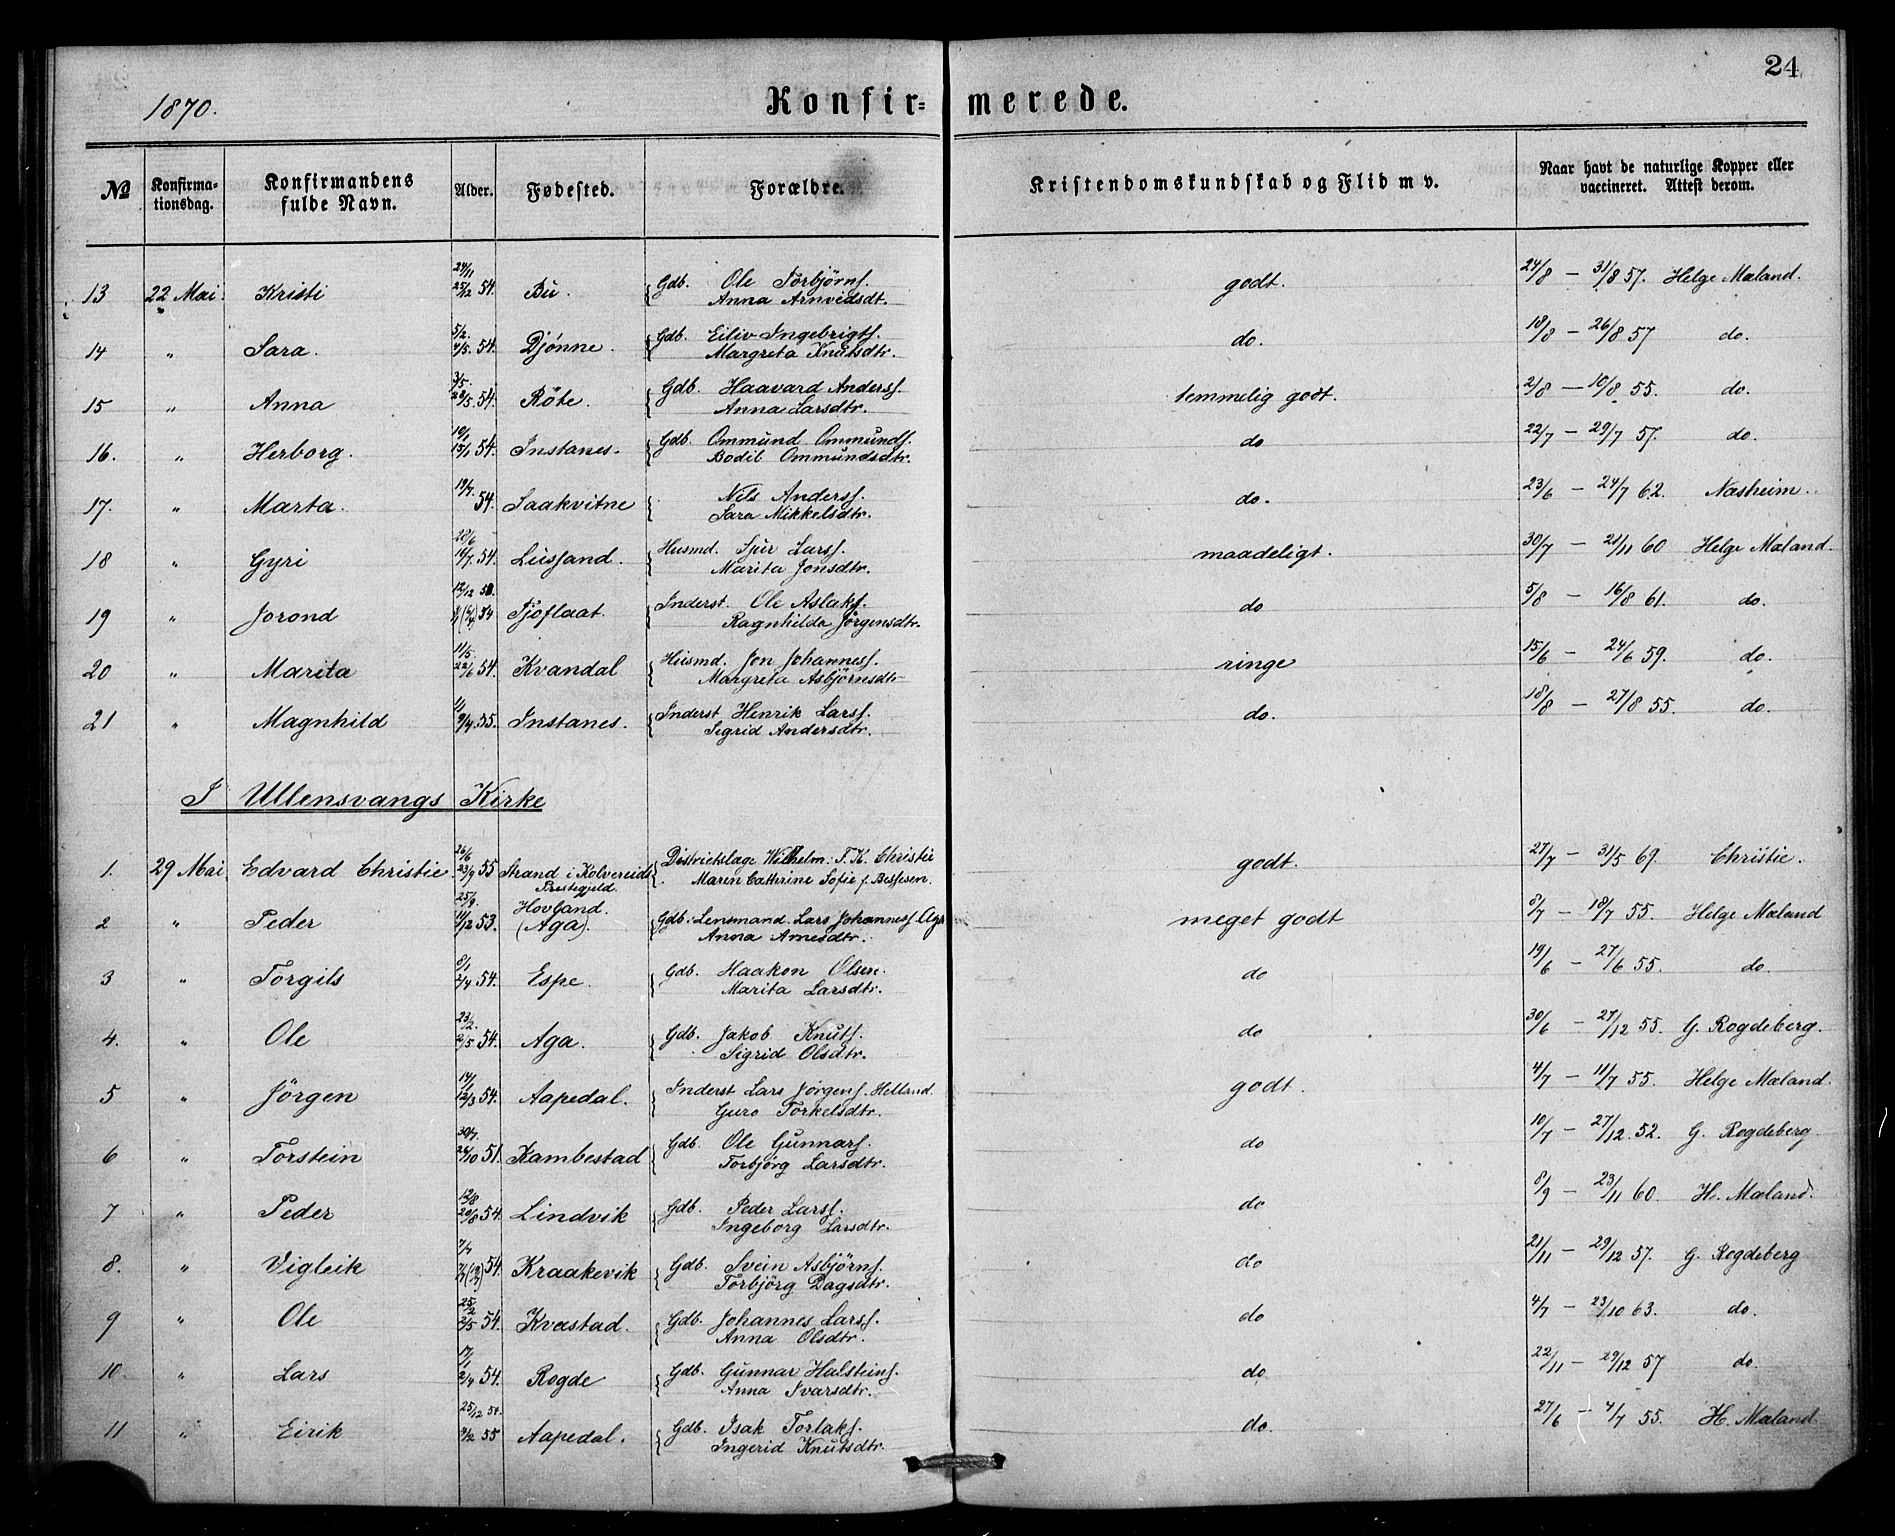 24
1870.
Konfir= merede.
№ Konfirma-tionsdag. Konfirmandens fulde Navn. Alder. Fødested. Forældre. Kristendomskundskab og Flid m v. Naar havt de naturlige Kopper eller vaccineret. Attest derom.
24/11
13 22 Mai Kristi 25/12 54. Bu. Gdb. Ole Torbjörns. godt. 24/8 — 31/8 57. Helge Mæland.
Anna Arnvedsdt.
5/2.
14 " Sara. 4/5. 54. Djønne. Gdb. Eiliv Ingebrigts. do. 18/8 — 26/8 57 do.
Margreta Knutsdtr.
3/5.
15 " Anna 28/5. 54. Röte. Gdb. Haavard Anders. temmelig godt. 2/8 — 10/8 55. do.
Anna Larsdtr.
10/1
16. " Herborg. 15/1 54. Instanes. Gdb. Ommund Ommunds. do 22/7 — 29/7 57. do.
Bodil Ommundsdtr.
17. " Marta. 19/7. 54. Saakvitne Nils Anders. do. 23/6 — 24/7 62. Næsheim.
Sara Mikkelsdtr.
28/6
18 " Gyri 16/7. 54. Lussand. Husmd. Sjur Lars. maadeligt. 30/7 — 21/11 60 Helge Mæland.
Marita Jonsdtr.
19 " Jorond 54 Tjoflaat. Inderst. Ole Aslaks. do 5/8 — 16/8 61. do.
Ragnhilda Jörgensdtr.
11/5.
20 " Marita 22/6 54. Kvandal Husmd. Jon Johannes. ringe 15/6 — 24/6 59. do.
Margreta Asbjörnsdtr
21 " Magnhild 9/4. 55. Instanes. Inderst Henrik Lars. do. 18/8 — 27/8 55. do.
Sigrid Andersdtr.
I Ullensvangs Kirke
26/6
1. 29 Mai Edvard Christie 23/9 55 Strand i Kolvereids Prestegjeld. Districtslæge Wilhelm. F. K. Christie godt. 27/7 — 31/5 69. Christie.
Maren Cathrine Sofie f. Bessesen.
25/9.
2 " Peder 11/12 53. Hovland. (Aga). Gdb. Lensmand Lars Johannes. Aga meget godt 8/7 — 18/7 55. Helge Mæland
Anna Arnesdtr.
8/1
3 " Torgils 2/4 54. Espe. Gdb. Haakon Olsen. do 19/6 — 27/6 55. do.
Marita Larsdtr.
23/2.
4. " Ole 2/5 54. Aga. Gdb. Jakob Knuts. do 30/6 — 27/12 55. G. Rogdeberg.
Sigrid Olsdtr.
14/1
5 " Jörgen 12/3 54. Aapedal. Inderst Lars Jörgens. Helland. godt. 4/7 — 11/7 55. Helge Mæland.
Guro Torkelsdtr.
30/7.
6 " Torstein 26/10 51. Kambestad Gdb. Ole Gunnars. do 10/7 — 27/12. 52. G. Rogdeberg.
Torbjörg Larsdtr.
12/8
7 " Peder 20/8 54. Lindvik Gdb. Peder Lars. do 8/9 — 23/11 60. H. Mæland.
Ingeborg Larsdtr.
8. " Vigleik 54. Kraakevik Gdb. Svein Asbjörns. do 21/11 — 29/12 57. G. Rogdeberg
Torbjörg Dagsdtr.
25/2
9 " Ole 2/5 54. Kvæstad. Gdb. Johannes Lars. do 4/7 — 23/10 63. do.
Anna Olsdtr.
17/1
10. " Lars 2/4 54. Rogde Gdb. Gunnar Halsteins. do 22/11 — 29/12 57 do.
Anna Ivarsdtr.
25/12 54.
11 " Eirik 55 Aapedal. Gdb. Isak Torlaks. do. 27/6 — 4/7 55. H. Mæland
Ingerid Knutsdtr.